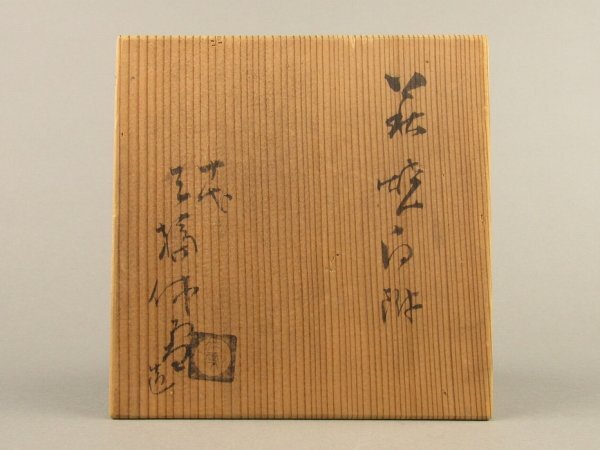 萩焼向附
十代
三輪休雪造